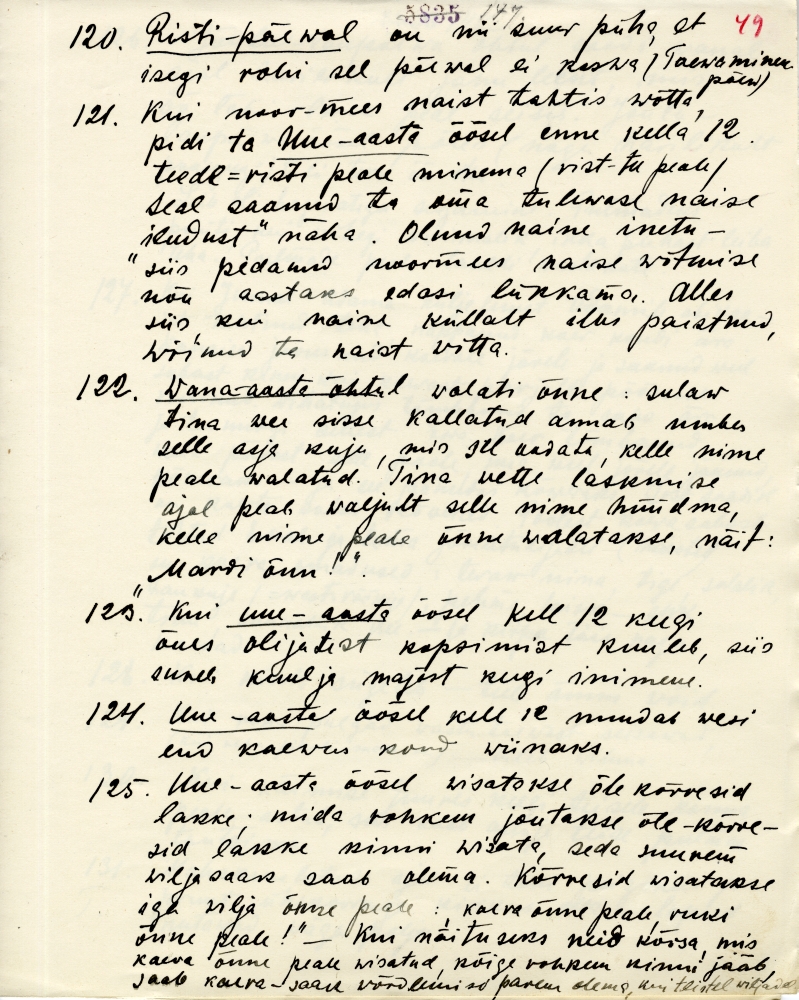 5835 147 49
120. Risti-päewal on nii suur püha, et
isegi rohi sel päewal ei kaswa (Taewaminem.
päew)
121. Kui noor-mees naist tahtis wõtta,
pidi ta Uue-aasta öösel enne kella 12.
teede=risti peale minema (rist-tee peale)
Seal saanud ta oma tulewase naise
"iludust" näha. Olnud naine inetu –
siis pidanud noormees naise wõtmise
nõu aastaks edasi lükkama. Alles
siis, kui naine küllalt ilus paistnud,
wõinud ta naist võtta.
122. Wana-aasta õhtul walati õnne: sulaw
tina wee sisse kallatud annab umbes
selle asja kuju, mis sel oodata, kelle nime
peale walatud. Tina vette laskmise
ajal peab waljult selle nime hüüdma,
kelle nime peale õnne walatakse, näit:
"Mardi õnn!".
123. Kui uue-aasta öösel kell 12 keegi
õues olijatest kopsimist kuuleb, siis
sureb kuulja majast keegi inimene.
124. Uue-aasta öösel kell 12 muudab wesi
end kaewus kord wiinaks.
125. Uue-aasta öösel wisatakse õlekõrresid
lakke; mida rohkem jõutakse õle-kõrre-
sid lakke kinni wisata, seda suurem
wiljasaak saab olema. Kõrresid wisatakse
iga vilja õnne peale: "kaera õnne peale, rukki
õnne peale!" – Kui näituseks neid kõrsa, mis
kaera õnne peale wisatud, kõige rohkem kinni jääb,
saab kaera-saak võrdlemisi parem olema, kui teistel viljadel.